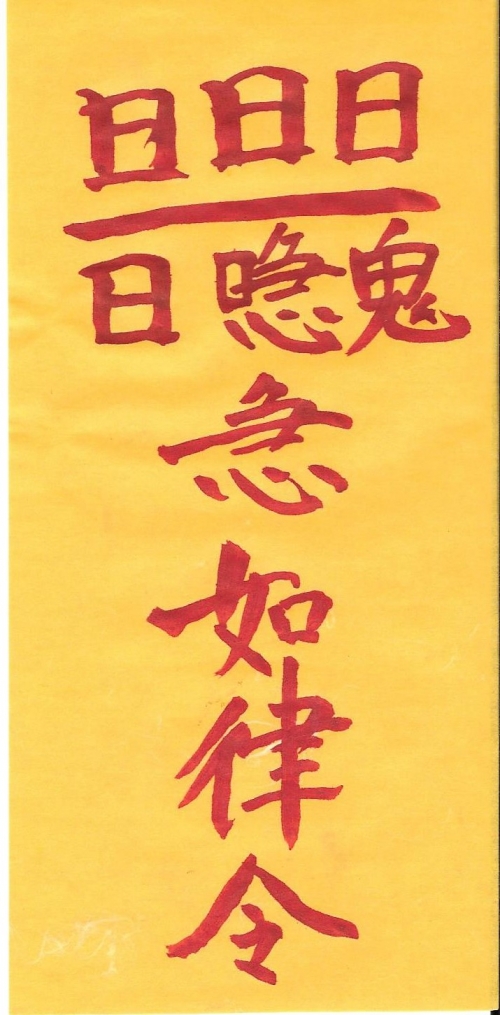 日日日
日 鬼
急如律令